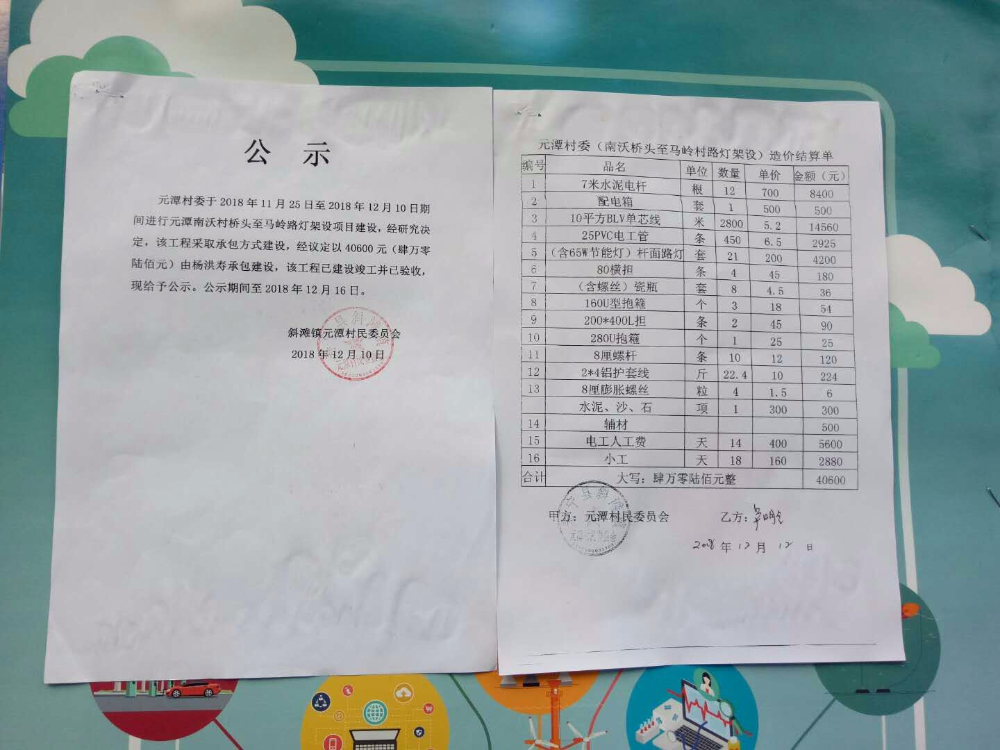 公 示
元潭村委于 2018 年 11 月 25 日至 2018 年 12 月 10 日期
间进行元潭南沃村桥头至马岭路灯架设项目建设，经研究决
定，该工程采取承包方式建设，经议定以 40600 元（肆万零
陆佰元）由杨洪寿承包建设，该工程已建设竣工并已验收，
现给予公示。公示期间至 2018 年 12 月 16 日。
斜滩镇元潭村民委员会
2018 年 12 月 10 日
元潭村委（南沃桥头至马岭村路灯架设）造价结算单
编号 品名 单位 数量 单价 金额（元）
1 7米水泥电杆 根 12 700 8400
2 配电箱 套 1 500 500
3 10平方BLV单芯线 米 2800 5.2 14560
4 25PVC电工管 条 450 6.5 2925
5 （含65W节能灯）杆面路灯 套 21 200 4200
6 80横担 条 4 45 180
7 （含螺丝）瓷瓶 套 8 4.5 36
8 160U型抱箍 个 3 18 54
9 200*400L担 条 2 45 90
10 280U抱箍 个 1 25 25
11 8厘螺杆 条 10 12 120
12 2*4铝护套线 斤 22.4 10 224
13 8厘膨胀螺丝 粒 4 1.5 6
水泥、沙、石 项 1 300 300
14 辅材 500
15 电工人工费 天 14 400 5600
16 小工 天 18 160 2880
合计 大写：肆万零陆佰元整 40600
甲方：元潭村民委员会 乙方：
2018 年 12 月 12 日